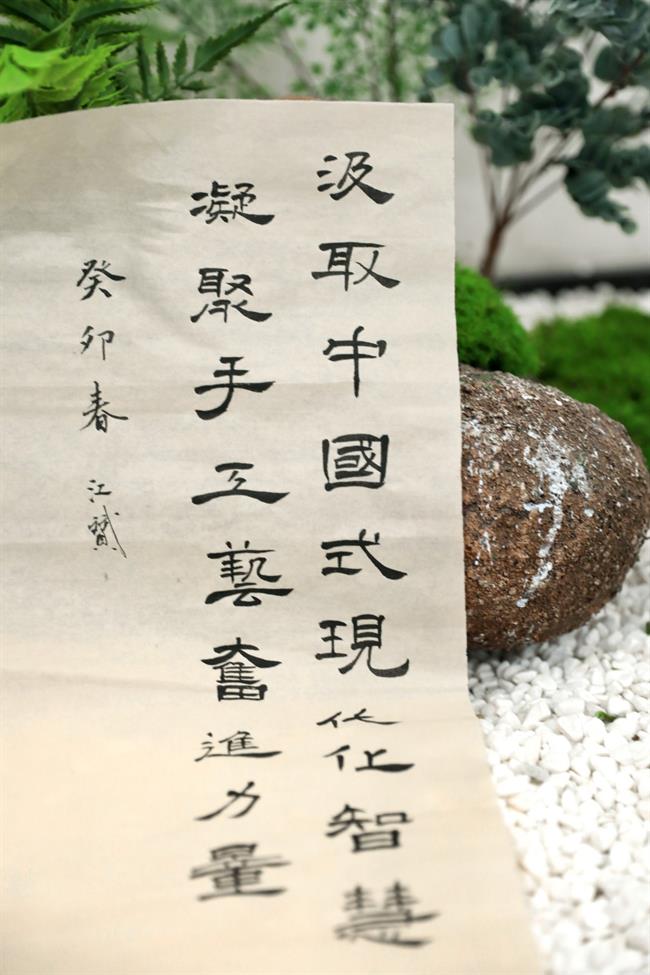 汲取中國式現代化智慧
凝聚手工藝奮進力量
癸卯春 江贇